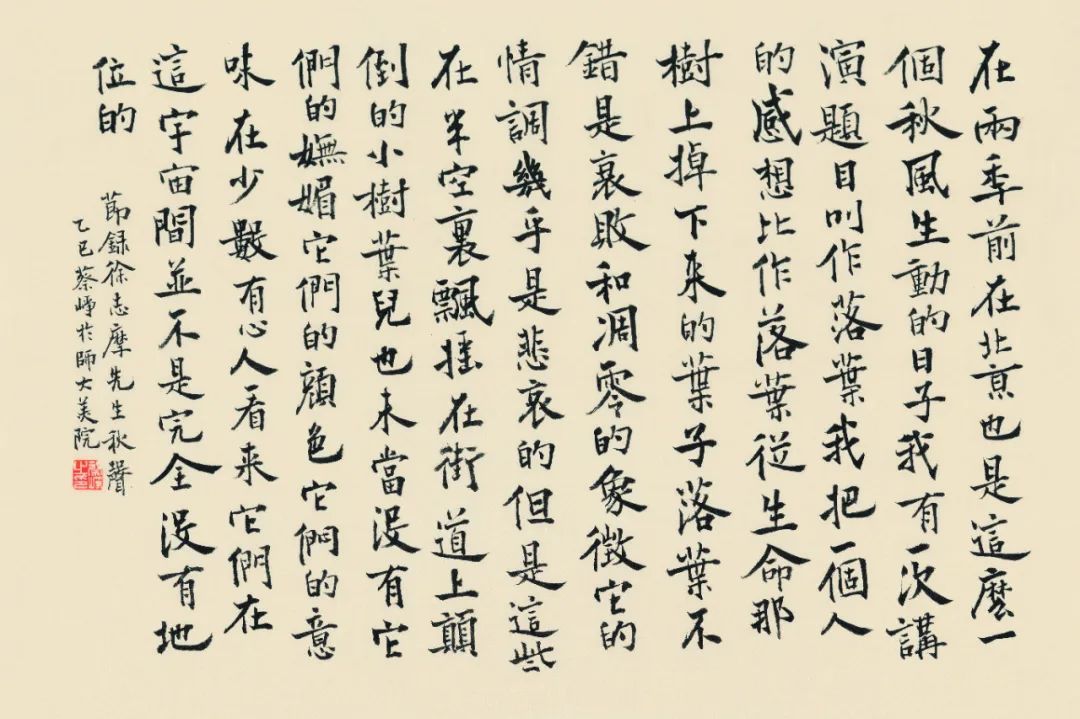 在兩季前在北京也是這麼一
個秋風生動的日子我有一次講
演題目叫作落葉我把一個人
的感想比作落葉從生命那
樹上掉下來的葉子落葉不
錯是衰敗和凋零的象徵它的
情調幾乎是悲哀的但是這些
在半空裏飄摇在街道上顛
倒的小樹葉兒也未當沒有它
們的嫵媚它們的顏色它們的意
味在少數有心人看来它們在
這宇宙間並不是完全沒有地
位的
節録徐志摩先生秋聲
乙巳蔡崢於師大美院